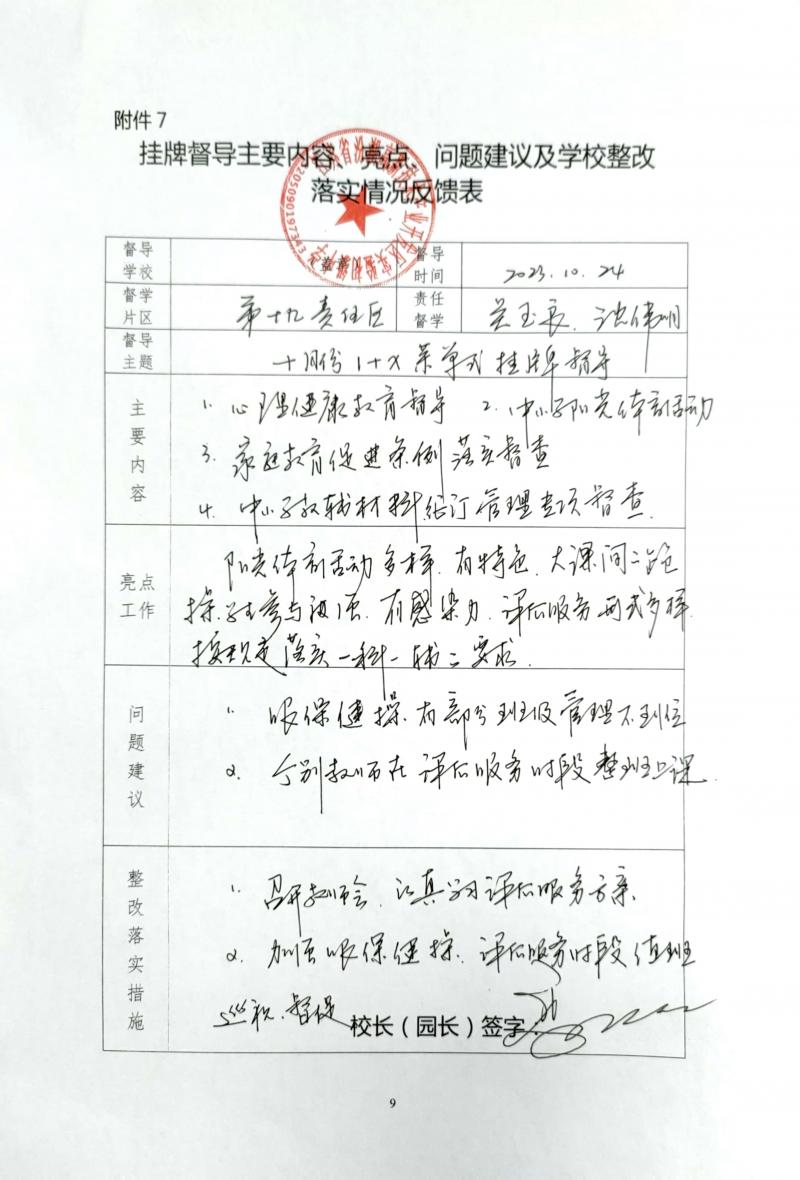 附件7
挂牌督导主要内容、亮点、问题建议及学校整改
落实情况反馈表
督导学校
(盖章)
督导时间
2023.10.24
督学片区
第十九责任区
责任督学
督导主题
十月份1+X菜单式挂牌督导
主要内容
1. 心理健康教育督导 2. 中小学阳光体育活动
3. 家庭教育促进条例落实督查
4. 中小学教辅材料征订管理专项督查.
亮点工作
阳光体育活动多样,有特色,大课间二跑
操,学生参与 有感染力.课后服务形式多样.
按规定落实一科一辅之要求.
问题建议
1. 眼保健操有部分班级管理不到位
2. 个别教师在课后服务时段整班上课.
整改落实措施
1. 召开教师会,认真学习课后服务方案.
2. 加强眼保健操、课后服务时段值班
巡视.督促
校长(园长)签字:
9